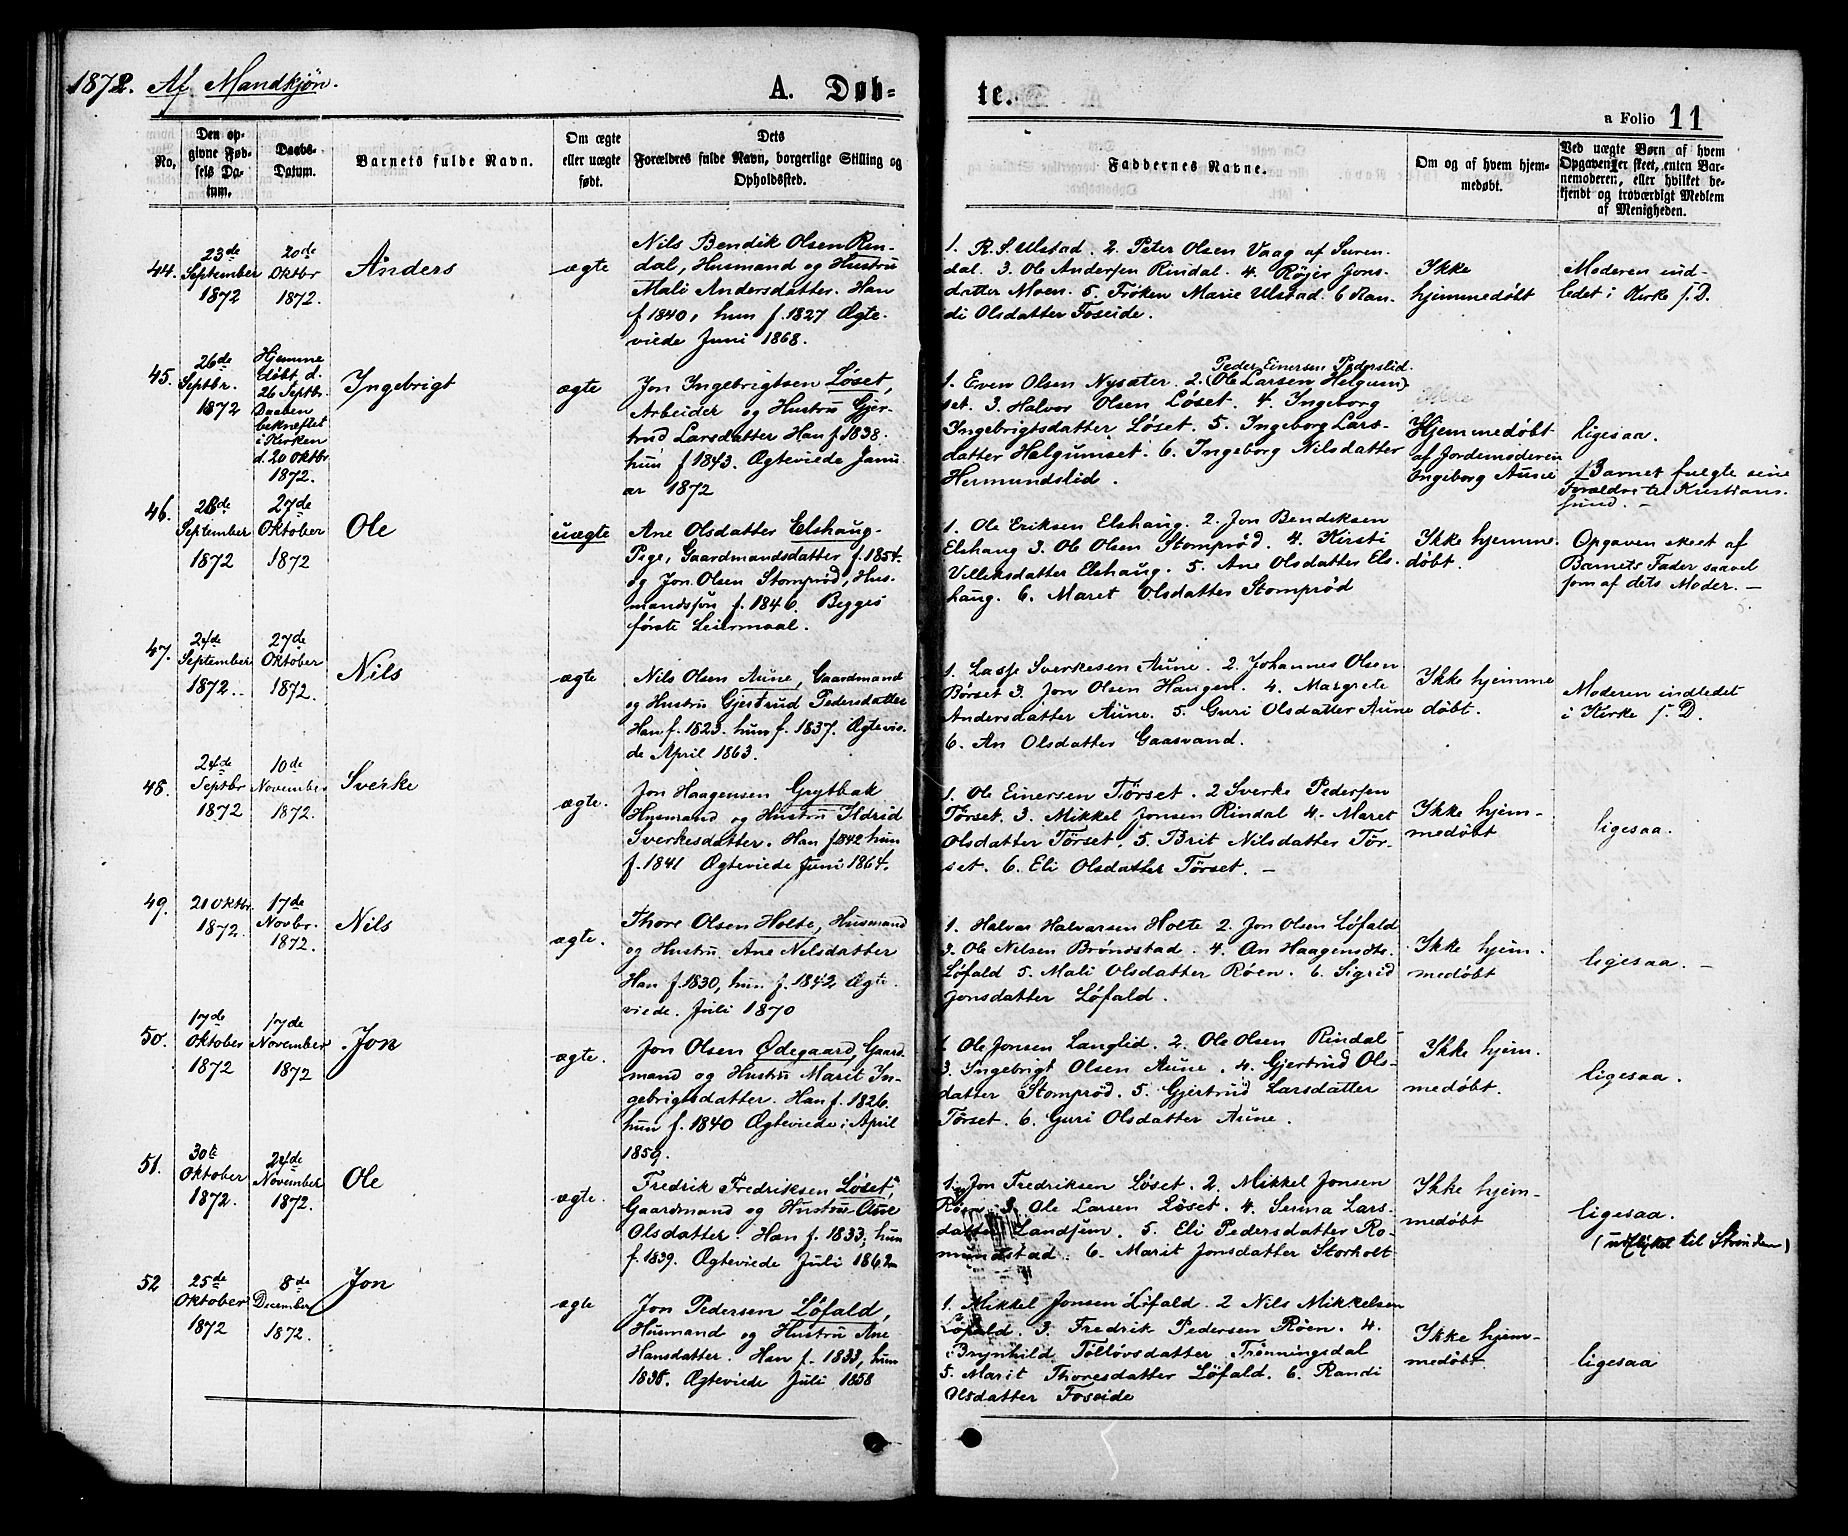 1872. Af Mandkjøn.
A. Døb-
te.
a Folio 11
No.
Den op-
givne Fød-
sels Da-
tum.
Daabs-
Datum.
Barnets fulde Navn.
Om ægte
eller uægte
født.
Dets
Forældres fulde Navn, borgerlige Stilling og
Opholdssted.
Faddernes Navne.
Om og af hvem hjem-
medøbt.
Ved uægte Børn af hvem
Opgaven er skeet, enten Bar-
nemoderen, eller hvilket be-
kjendt og troværdigt Medlem
af Menigheden.
44.
23de
September
1872
20de
Oktbr
1872.
Anders
ægte
Nils Bendik Olsen Rin-
dal, Husmand og Hustru
Mali Andersdatter. Han
f 1840, hun f. 1827 Ægte-
viede Juni 1868.
1. R. S. Ulstad. 2. Peter Olsen Vaag af Suren-
dal. 3. Ole Andersen Rindal. 4. Røjer Jons-
datter Moen. 5. Frøken Marie Ulstad. 6 Ran-
di Olsdatter Foseide.
Ikke
hjemmedøbt
Moderen ind-
ledet i Kirke s. D.
45.
26de
Septbr.
1872
Hjemme
døbt d.
26 Septbr.
Daaben
bekræftet
i Kirken
d. 20 Oktbr
1872.
Ingebrigt
ægte
Jon Ingebrigtsen Løset,
Arbeider og Hustru Gjer-
trud Larsdatter Han f. 1838.
hun f 1843. Ægteviede Janu
ar 1872
Peder Einersen Pederslid
1. Even Olsen Nysæter. 2. (Ole Larsen Helgum)
set. 3. Halvor Olsen Løset. 4. Ingeborg
Ingebrigtsdatter Løset. 5. Ingeborg Lars-
datter Helgumset. 6. Ingeborg Nilsdatter
Hermundslid.
Hjemmedøbt
af Jordemoderen
Ingeborg Aune
ligesaa.
Barnet fulgte sine
Forældre til Kristians-
sund. -
46.
28de
September
1872
27de
Oktober
1872
Ole
uægte
Ane Olsdatter Elshaug-
Pige, Gaardmandsdatter f. 1854.
og Jon Olsen Stomprød, Hus-
mandssøn f. 1846. Begges
første Leiermaal.
1. Ole Eriksen Elshaug. 2. Jon Bendiksen
Elshaug 3. Ole Olsen Stomprød. 4. Kirsti
Villeksdatter Elshaug. 5. Ane Olsdatter Els-
haug. 6. Maret Olsdatter Stomprød
Ikke hjemme
døbt.
Opgaven skeet af
Barnets Fader saavel
som af dets Moder. —
47.
24de
September
1872.
27de
Oktober
1872.
Nils
ægte
Nils Olsen Aune, Gaardmand
og Hustru Gjertrud Pedersdatter
Han f. 1823. hun f. 1837. Ægtevie-
de April 1863.
1. Lasse Sverkesen Aune. 2. Johannes Olsen
Børset 3. Jon Olsen Haugen. 4. Margrete
Andersdatter Aune. 5. Guri Olsdatter Aune
6. An Olsdatter Gaasvand.
Ikke hjemme
døbt.
Moderen indledet
i Kirke s. D.
48.
24de
Septbr
1872
10de
November
1872.
Sverke
ægte.
Jon Haagensen Grytbak
Husmand og Hustru Ildrid
Sverkesdatter. Han f. 1842 hun
f. 1841 Ægteviede Juni 1864.
1. Ole Einersen Tørset. 2 Sverke Pedersen
Tørset. 3. Mikkel Jonsen Rindal 4. Maret
Olsdatter Tørset. 5. Brit Nilsdatter Tør-
set. 6. Eli Olsdatter Tørset. —
Ikke hjem-
medøbt
ligesaa.
49.
21 Oktbr.
1872.
17de
Novbr.
1872.
Nils
ægte.
Thore Olsen Holte, Husmand
og Hustru Ane Nilsdatter
Han f. 1830, hun f. 1842 Ægte.
viede. Juli 1870
1. Halvar Halvarsen Holte 2. Jon Olsen Løfald
3. Ole Nilsen Brøndstad. 4. An Haagensdtr.
Løfald 5. Mali Olsdatter Røen. 6. Sigrid
Jonsdatter Løfald.
Ikke hjem.
medøbt
ligesaa. -
50.
17de
Oktober
1872
17de
November
1872
Jon
ægte.
Jon Olsen Ødegaard, Gaard-
mand og Hustru Marit In-
gebrigtsdatter. Han f. 1826.
hun f. 1840 Ægteviede i April
1859.
1. Ole Jonsen Langlid. 2. Ole Olsen Rindal
3. Ingebrigt Olsen Aune. 4. Gjertrud Ols-
datter Stomprød. 5. Gjertrud Larsdatter
Tørset. 6. Guri Olsdatter Aune.
Ikke hjem.
medøbt.
ligesaa.
51.
30te
Oktober
1872.
24de
November
1872.
Ole
ægte.
Fredrik Fredriksen Løset,
Gaardmand og Hustru Ane
Olsdatter. Han f. 1833, hun
f. 1839. Ægteviede Juli 1862
1. Jon Fredriksen Løset. 2. Mikkel Jonsen
Røen 3. Ole Larsen Løset. 4. Serina Lars-
datter Landsem. 5. Eli Pedersdatter Ro-
mundstad. 6. Marit Jonsdatter Storholt
Ikke hjem-
medøbt
ligesaa.
(udflyttet til Strinden)
52
25de
Oktober
1872
8de
December
1872.
Jon
ægte
Jon Pedersen Løfald,
Husmand og Hustru Ane
Hansdatter. Han f. 1833, hun
1838. Ægteviede Juli 1858
1. Mikkel Jonsen Løfald. 2 Nils Mikkelsen
Løfald. 3. Fredrik Pedersen Røen. 4.
Brynhild Tølløvsdatter Trønningsdal
5. Marit Thoresdatter Løfald. 6. Randi
Olsdatter Foseide
Ikke hjem-
medøbt
ligesaa